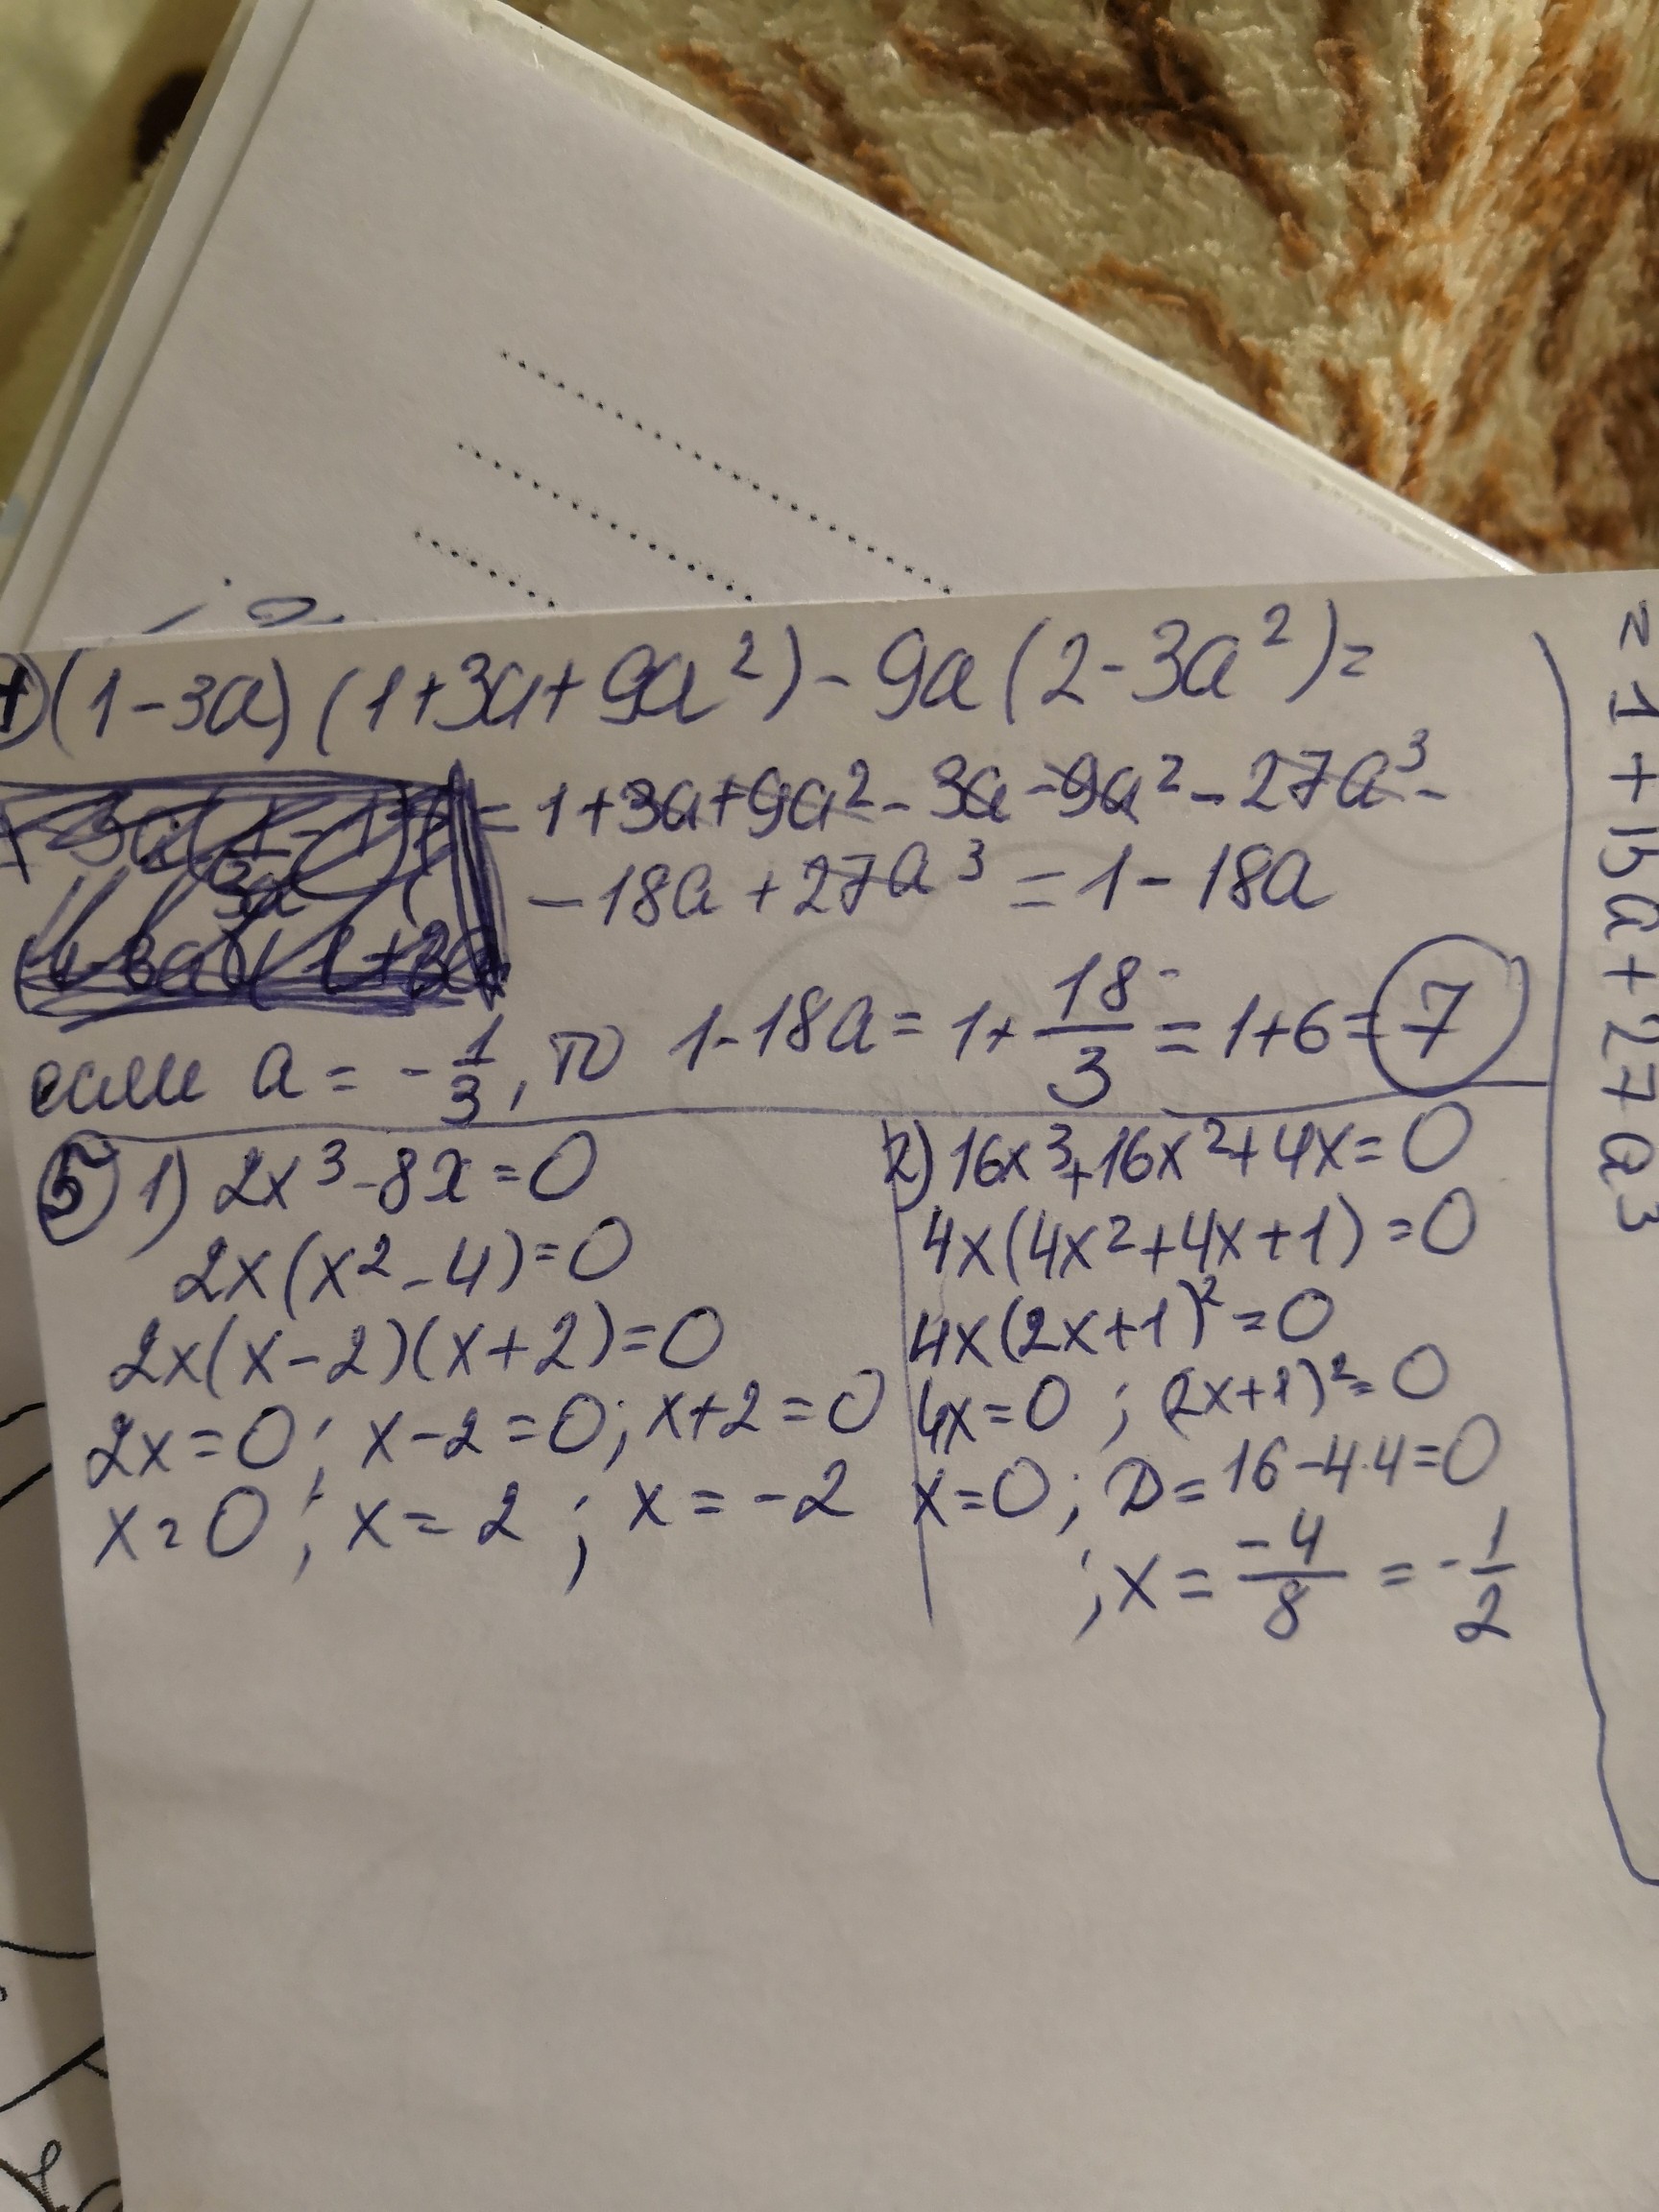 (1-3a)(1+3a+9a²)-9a(2-3a²)=
=1+3a+9a²-3a-9a²-27a³-
-18a+27a³=1-18a
если a=-1/3, то 1-18a=1+18/3=1+6=7
5 1) 2x³-8x=0
2x(x²-4)=0
2x(x-2)(x+2)=0
2x=0; x-2=0; x+2=0
x=0; x=2; x=-2
2) 16x³+16x²+4x=0
4x(4x²+4x+1)=0
4x(2x+1)²=0
4x=0; (2x+1)²=0
x=0; D=16-4·4=0
; x=-4/8=-1/2
=1+15a+27a³